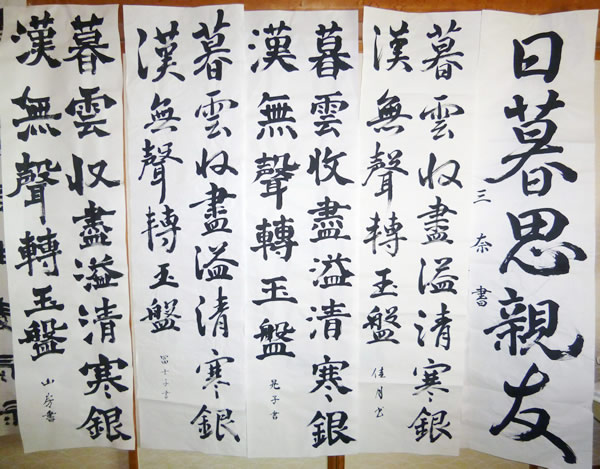 日暮思親友
三奈書
暮雲収盡溢清寒銀
漢無聲轉玉盤
佳月書
暮雲收盡溢清寒銀
漢無聲轉玉盤
暮雲収盡溢清寒銀
漢無聲轉玉盤
冨士子書
暮雲収盡溢清寒銀
漢無聲轉玉盤
山芳書